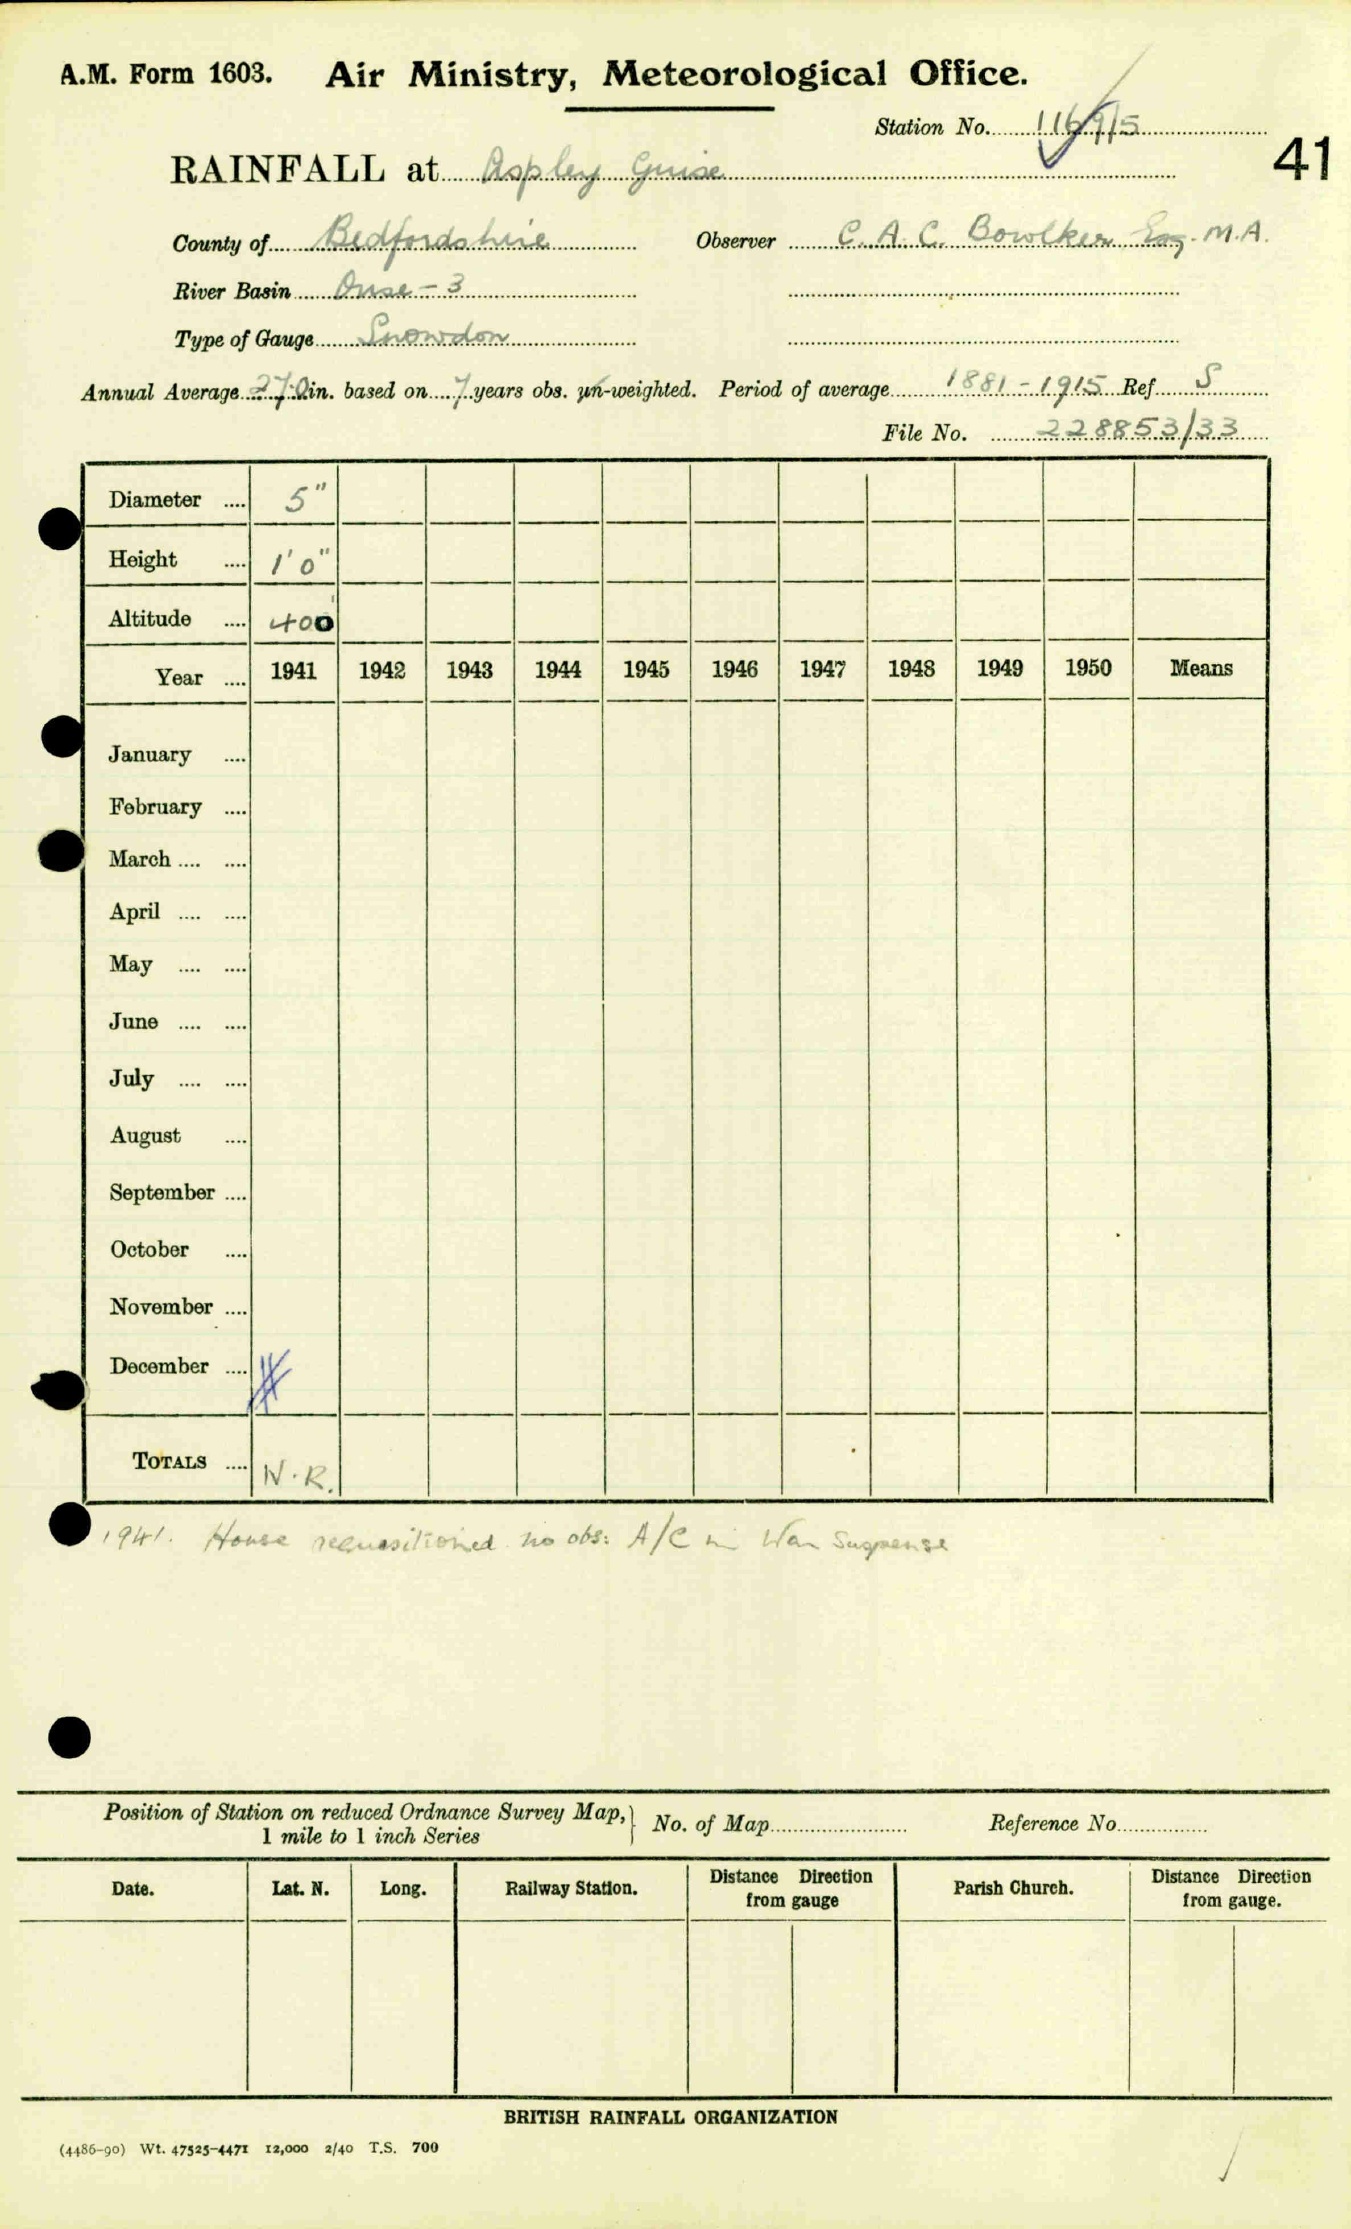 A.M. Form 1603. Air Ministry, Meteorological Office.
Station No. 1169/5
41
RAINFALL at Aspley Guise
County of Bedfordshire Observer C. A. C. Bowlker Esq. M.A.
River Basin Ouse - 3
Type of Gauge Snowdon
Annual Average 27.0 in. based on 7 years obs. un-weighted. Period of average 1881 - 1915 Ref S
File No. 228853/33
Diameter .... 5"
Height .... 1' 0"
Altitude .... 400'
Year .... 1941 1942 1943 1944 1945 1946 1947 1948 1949 1950 Means
January ....
February ....
March .... ....
April .... ....
May .... ....
June .... ....
July .... ....
August ....
September ....
October ....
November ....
December ....
TOTALS .... N.R.
1941. House requisitioned no obs: A/C in War Suspense
Position of Station on reduced Ordnance Survey Map, No. of Map Reference No
1 mile to 1 inch Series
Date. Lat. N. Long. Railway Station. Distance Direction from gauge Parish Church. Distance Direction from gauge.
BRITISH RAINFALL ORGANIZATION
(4486-90) Wt. 47525-4471 12,000 2/40 T.S. 700